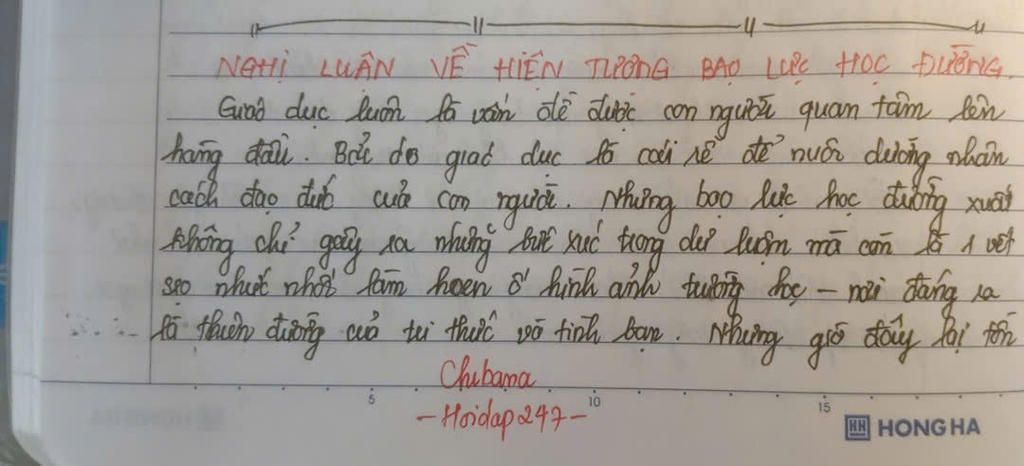 NGHỊ LUẬN VỀ HIỆN TƯỢNG BẠO LỰC HỌC ĐƯỜNG.
Giáo dục luôn là vấn đề được con người quan tâm lên
hàng đầu. Bởi do giáo dục là cái rễ để nuôi dưỡng nhân
cách đạo đức của con người. Nhưng bạo lực học đường xuất
không chỉ gây ra những bức xúc trong dư luận mà còn là 1 vết
sẹo nhức nhối làm hoen ố hình ảnh trường học – nơi đáng ra
là thiên đường của tri thức và tình bạn. Nhưng giờ đây lại tồn
Chibama
- Hoidap247 -
5
10
15
HH HONG HA